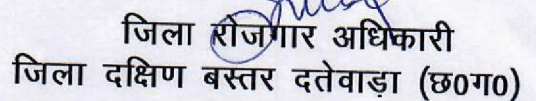 जिला रोजगार अधिकारी
जिला दक्षिण बस्तर दतेवाड़ा (छ0ग0)